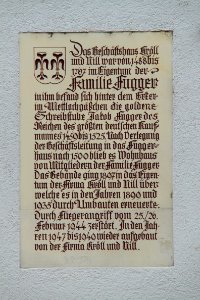 Das Geschäftshaus Kröll
und Nill war von 1488 bis
1797 im Eigentum der
Familie Fugger
in ihm befand sich hinter dem Erker
im Westflachgäßchen die goldene
Schreibstube Jakob Fugger des
Reichen des größten deutschen Kauf-
mannes 1459 bis 1525. Nach Verlegung
der Geschäftsleitung in das Fugger-
haus nach 1500 blieb es Wohnhaus
von Mitgliedern der Familie Fugger
Das Gebäude ging 1897 in das Eigen-
tum der Firma Kröll und Nill über
welche es in den Jahren 1899 und
1935 durch Umbauten erneuerte.
Durch Fliegerangriff vom 25./26.
Februar 1944 zerstört. In den Jah-
ren 1947 bis 1949 wieder aufgebaut
von der Firma Kröll und Nill.